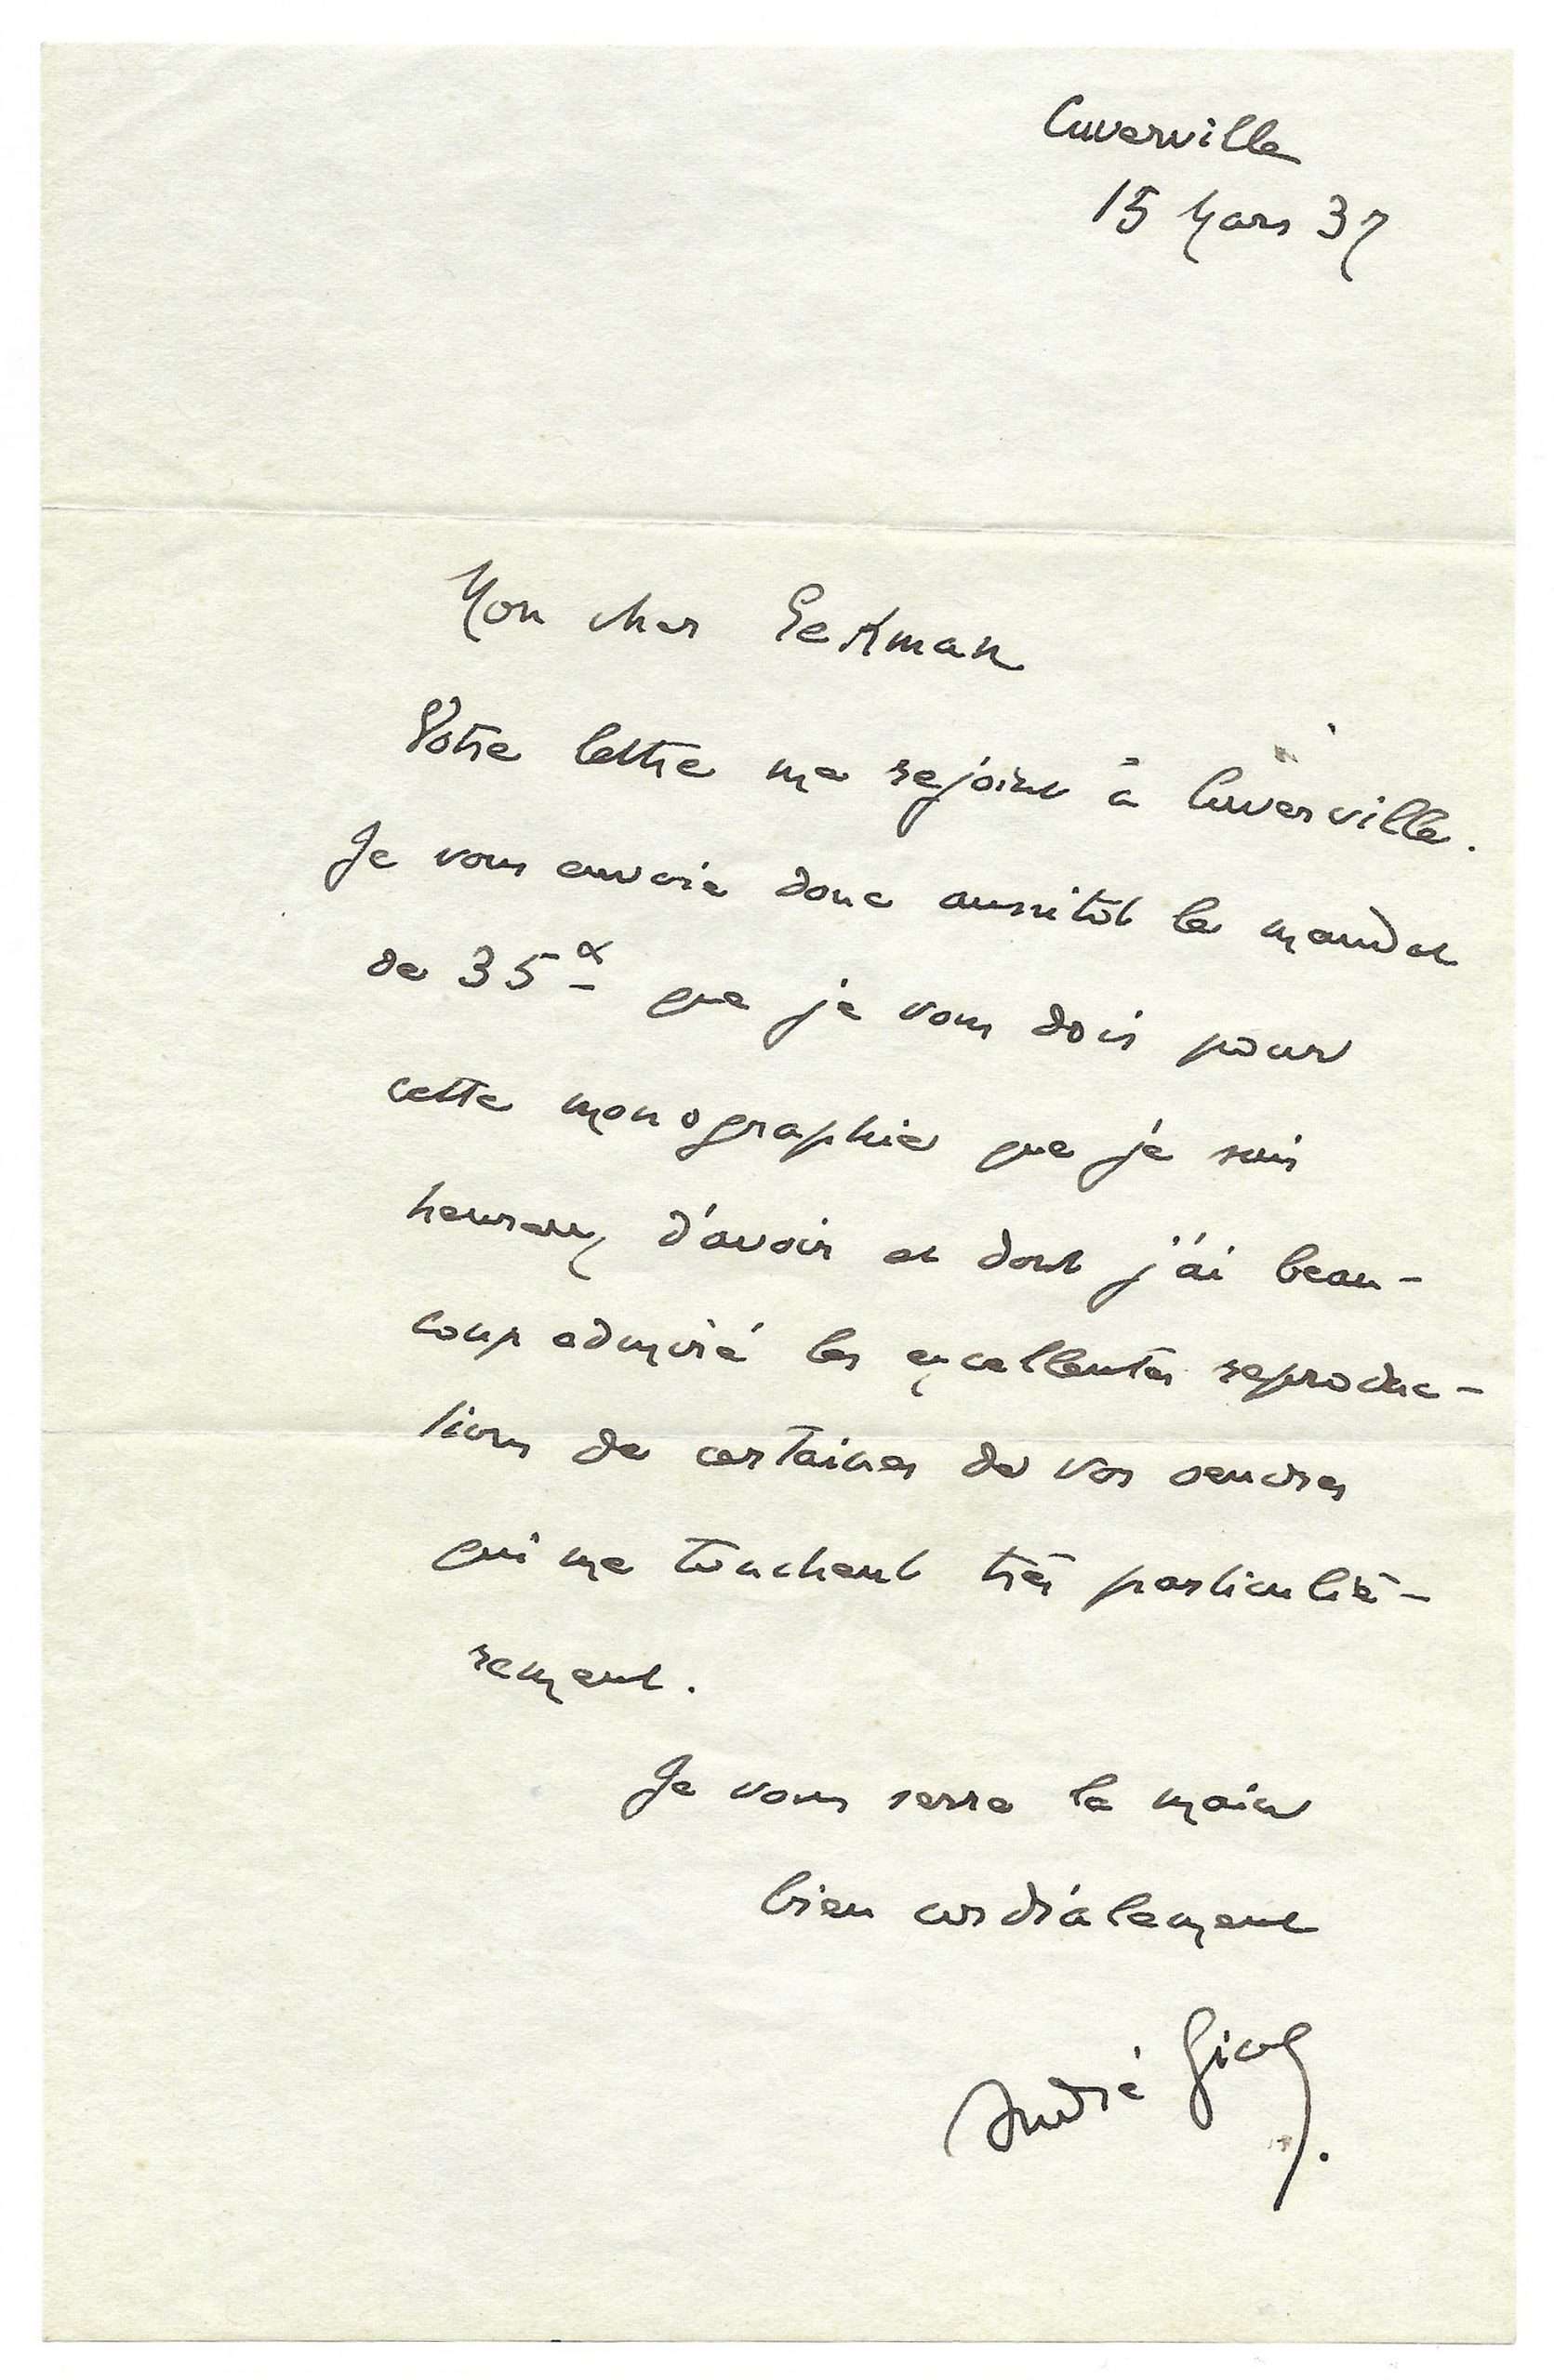 Cuverville
15 Mars 37
Mon cher Gekman
Votre lettre me rejoint à Cuverville.
Je vous envoie donc aussitôt le mandat
de 35 que je vous dois pour
cette monographie que je suis
heureux d'avoir et dont j'ai beau-
coup admiré les excellentes reproduc-
tions de certaines de vos oeuvres
qui me touchent très particuliè-
rement.
Je vous serre la main
bien cordialement
André Gide.